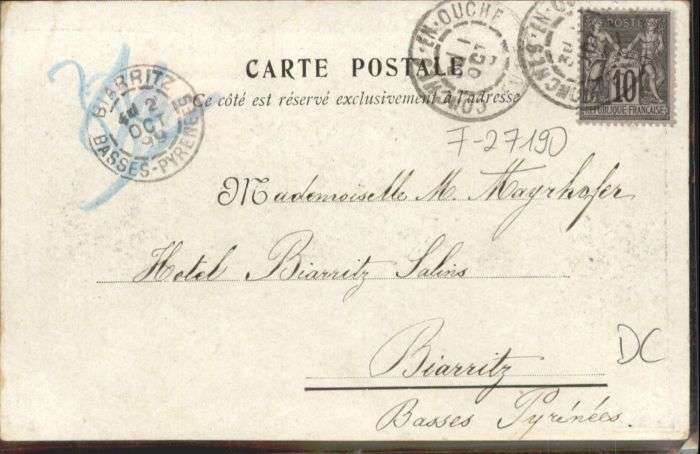 CARTE POSTALE
Ce côté est réservé exclusivement à l'adresse
CONCHES-EN-OUCHE
1
OCT
CONCHES-EN-OUCHE
POSTE
10
REPUBLIQUE FRANÇAISE
BIARRITZ
2
OCT
BASSES-PYRENEES
F-27190
Mademoiselle M. Mayrhofer
Hotel Biarritz Salins
Biarritz
Basses Pyrénées.
DC